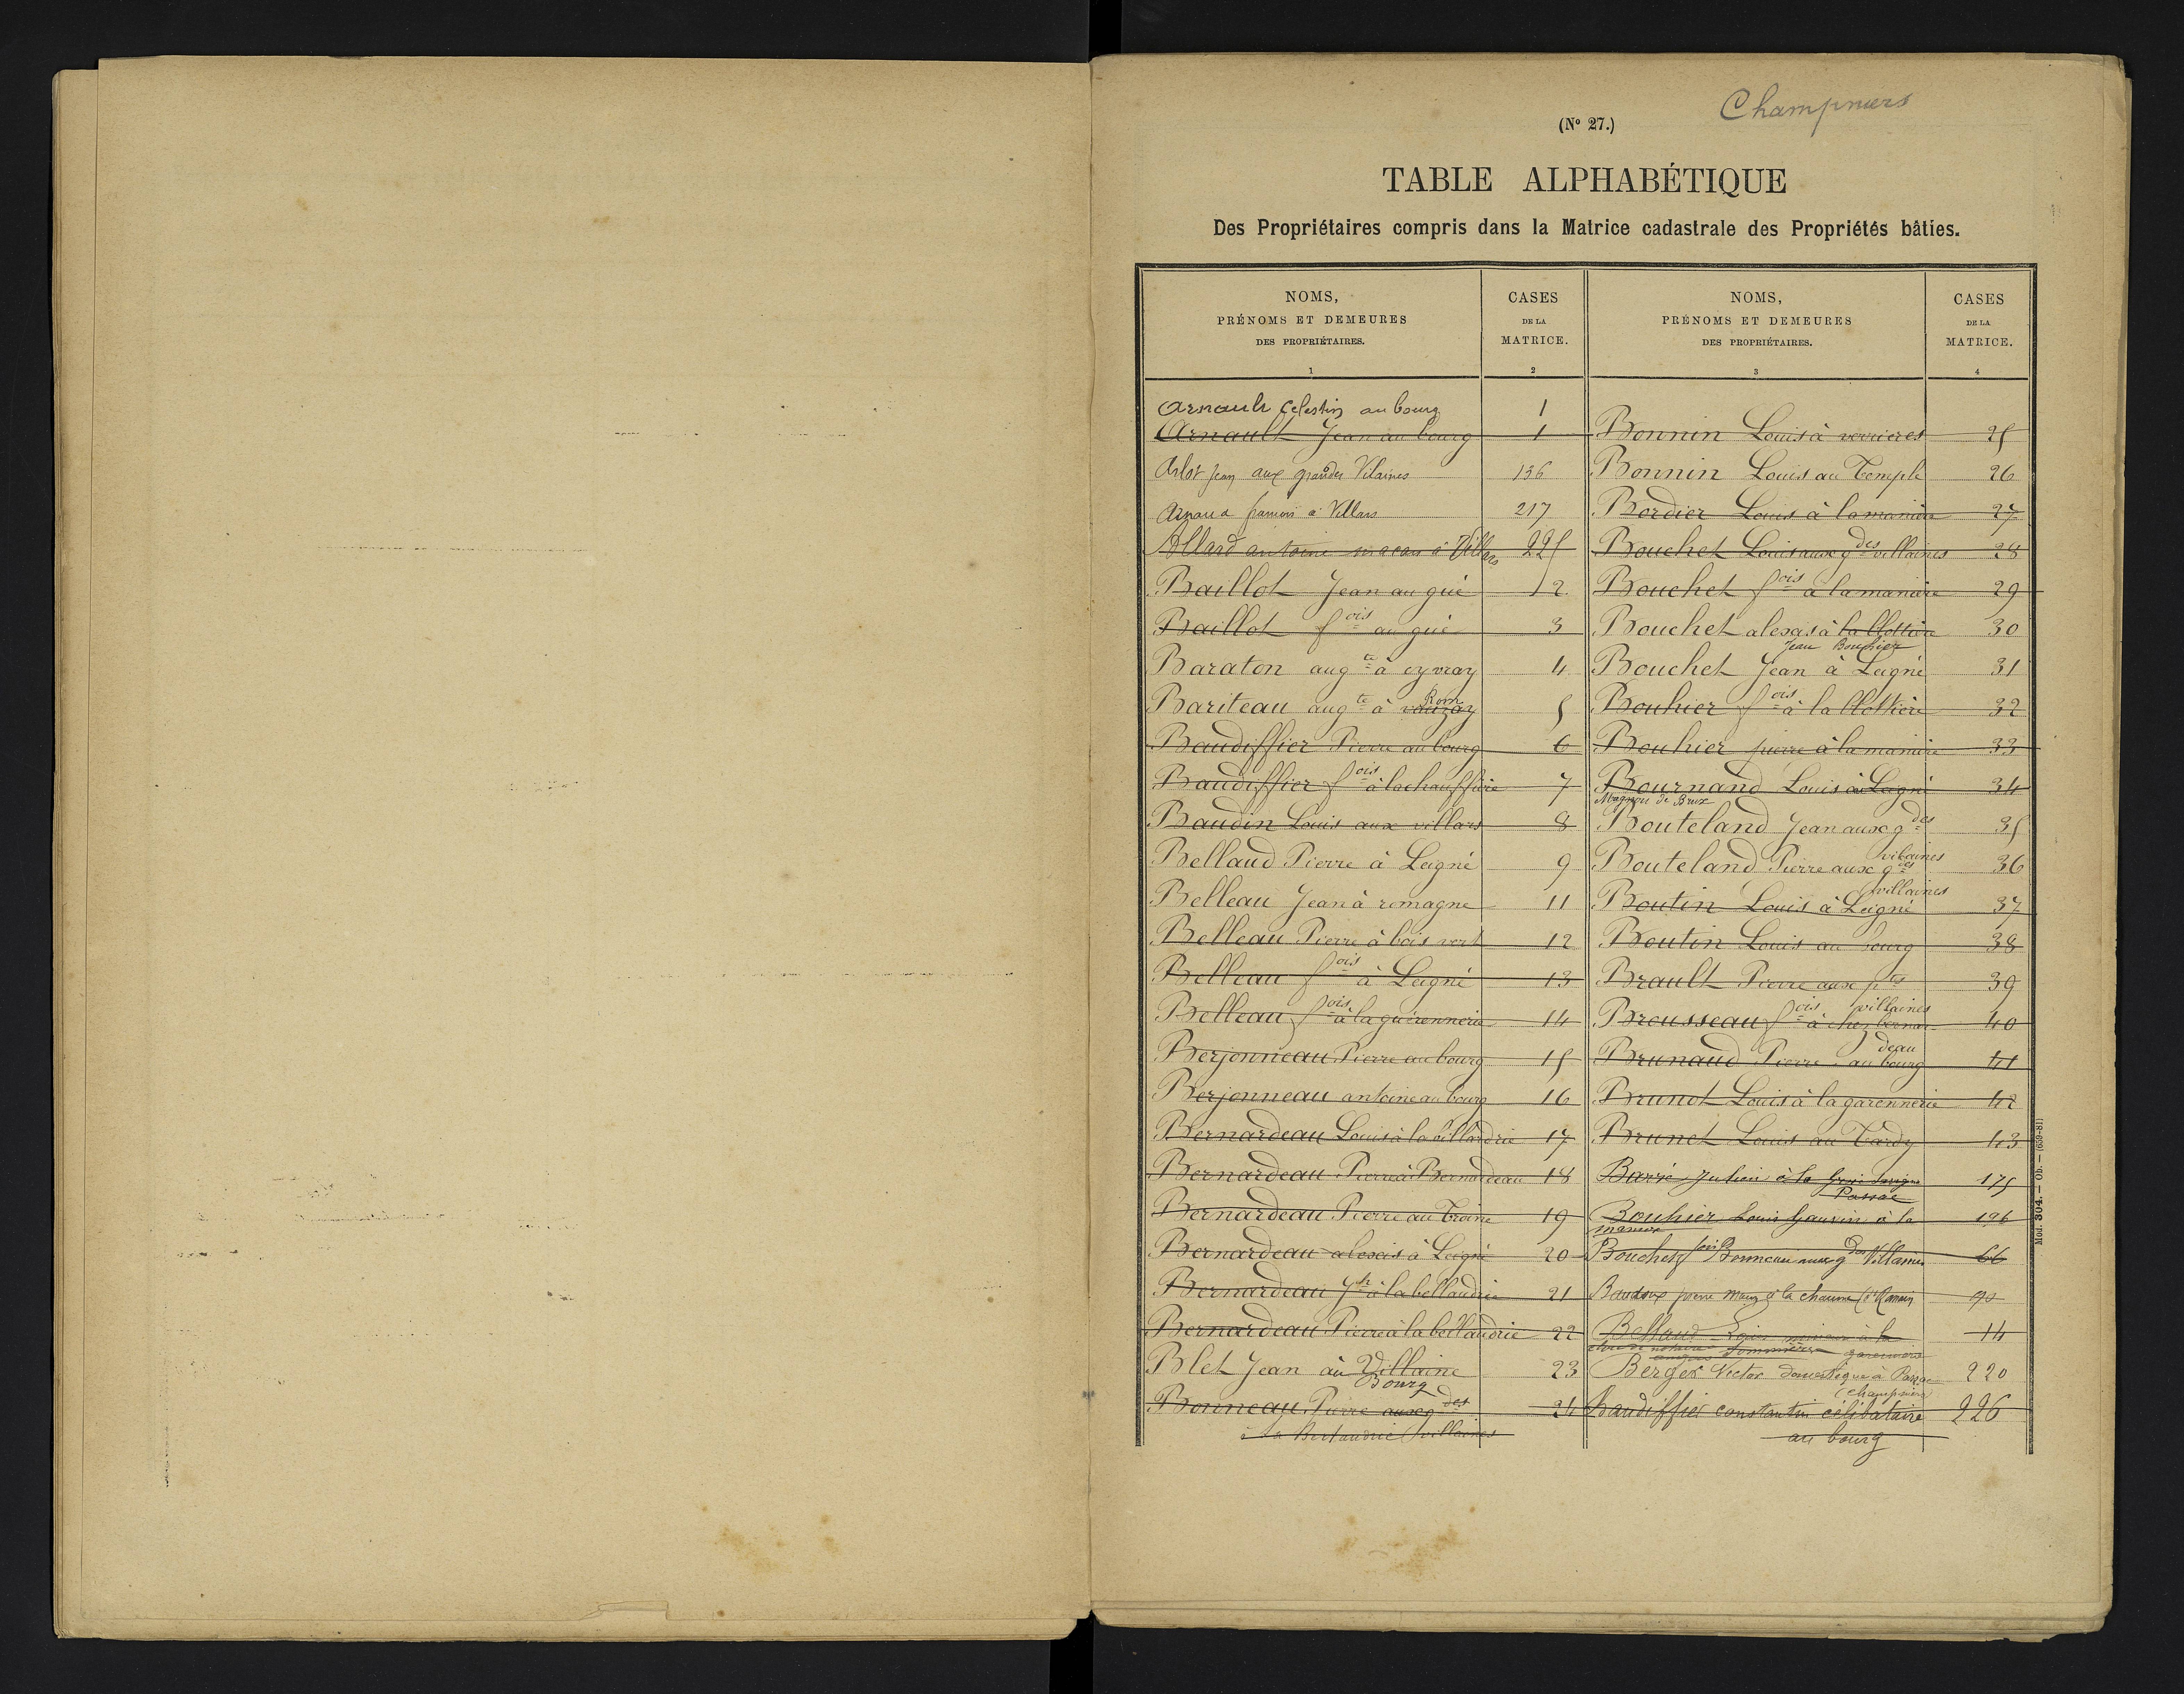 Champniers
(Nº 27.)
TABLE ALPHABÉTIQUE
Des Propriétaires compris dans la Matrice cadastrale des Propriétés bâties.
NOMS,
PRÉNOMS ET DEMEURES
DES PROPRIÉTAIRES.
1
CASES
DE LA
MATRICE.
2
Arnault Celestin au bourg 1
Arnault Jean au bourg 1
Arlot Jean aux grandes Vilaines 136
Arnaud francois à Villars 217
Allard antoine maçon à Villars 225
Baillot Jean au gué 2
Baillot fois au gué 3
Baraton augte à eyvray 4
Bariteau augte à vauzay Rom 5
Baudiffier Pierre au bourg 6
Baudiffier fois à la chauffière 7
Baudin Louis aux villars 8
Bellaud Pierre à Leigné 9
Belleau Jean à romagne 11
Belleau Pierre à bois vert 12
Belleau fois à Leigné 13
Belleau fois à la guérennerie 14
Berjonneau Pierre au bourg 15
Berjonneau antoine au bourg 16
Bernardeau Louis à la billardrie 17
Bernardeau Pierre à Bernardeau 18
Bernardeau Pierre au Troine 19
Bernardeau alexis à Leigné 20
Bernardeau Jh à la bellaudrie 21
Bernardeau Pierre à la bellaudrie 22
Blet Jean au Villaine 23
Bourg
Bonneau Pierre aux gdes 24
à la Bertaudrie villaines
NOMS,
PRÉNOMS ET DEMEURES
DES PROPRIÉTAIRES.
3
CASES
DE LA
MATRICE.
4
Bonnin Louis à verrieres 25
Bonnin Louis au Temple 26
Bordier Louis à la maniere 27
Bouchet Louis aux gdes villaines 28
Bouchet fois à la maniere 29
Bouchet alexis à la Clottière 30
Jean Bouhier
Bouchet Jean à Leigné 31
Bouhier fois à la Clottière 32
Bouhier pierre à la maniere 33
Bournand Louis à Leigné 34
Magnou de Brux
Bouteland Jean aux gdes 35
vilaines
Bouteland Pierre aux gdes 36
villaines
Boutin Louis à Leigné 37
Boutin Louis au bourg 38
Brault Pierre aux ptes 39
villaines
Brousseau fois à chez bernar 40
deau
Brunaud Pierre au bourg 41
Brunet Louis à la garennerie 42
Brunet Louis au Tardy 43
Barré Julien à la 175
Passac
Bouhier Louis Gauvin à la 196
maniere
Bouchet fois Bonneau aux gdes Villaines 66
Baudoux pierre à la chaume St Romain 90
Bellaud Louis à la 14
Berger Victor domestique à Passac 220
(Champniers
Baudiffier constantin célibataire 226
au bourg
Mod. 304. — Ob. — (659-81)